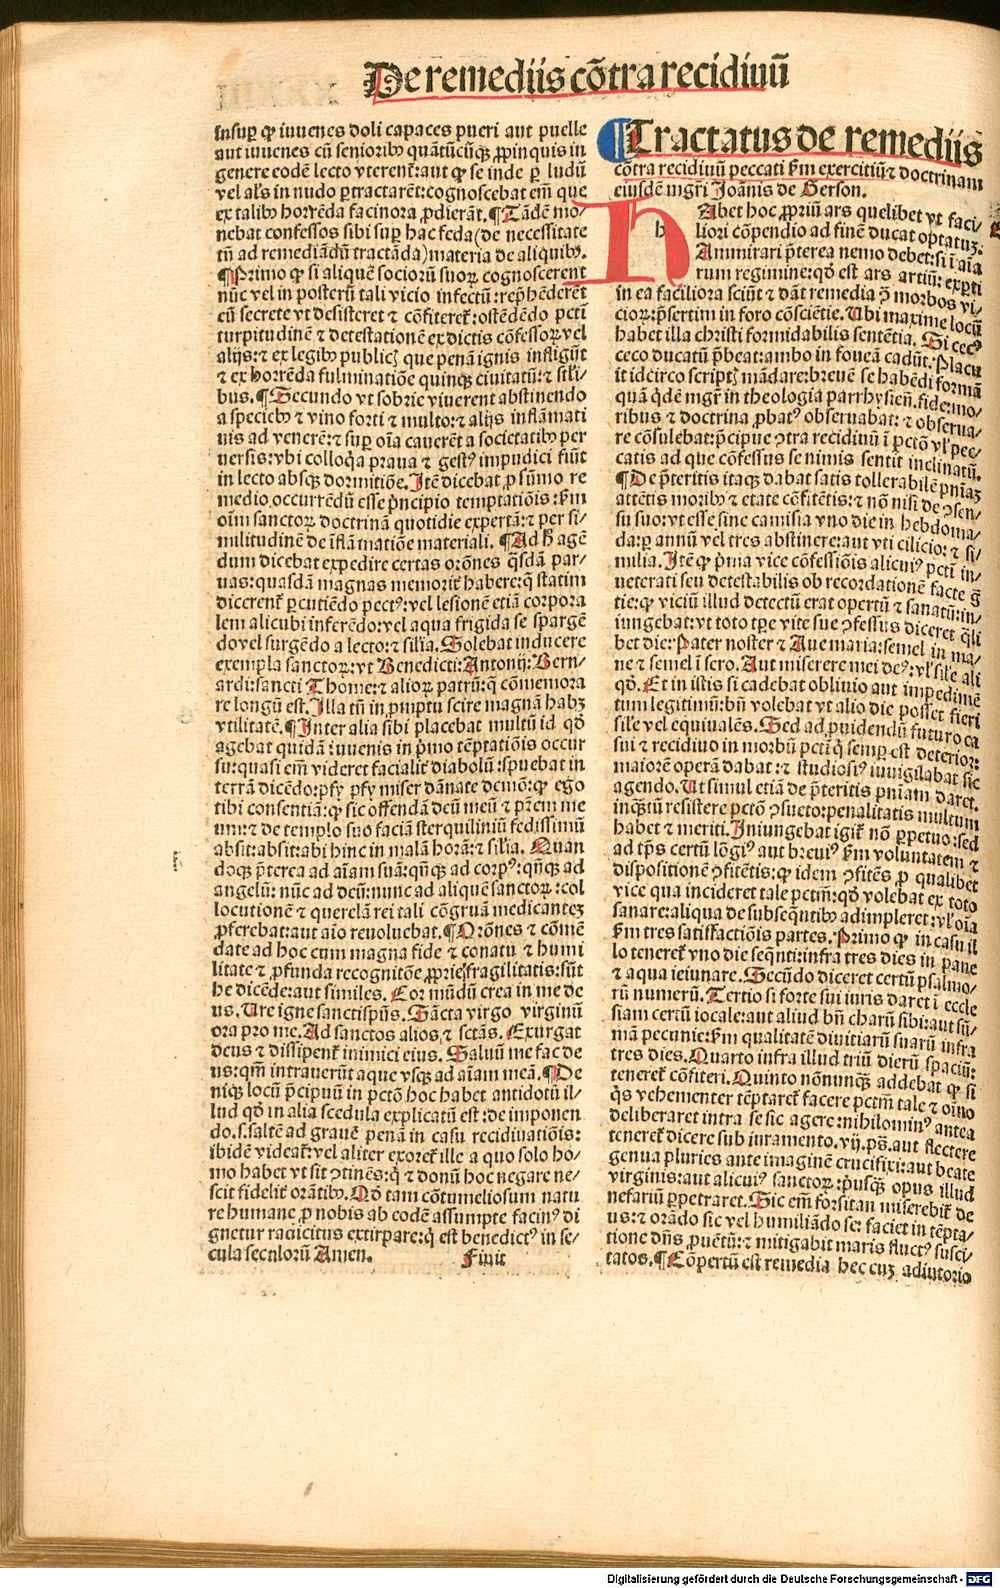 De remediis cōtra recidiuū
Insuꝑ ꝙ iuuenes doli capaces pueri aut puelle
aut iuuenes cū senioribꝰ quātūcūqꝫ ꝓpinquis in
genere eodē lecto vterent̄: aut ꝙ se inde ꝑ ludū
vel al̄s in nudo ꝑtractarēt: cognoscebat em̄ que
ex talibꝰ horrēda facinora ꝓdierāt. ¶ Tādē mo⸗
nebat confessos sibi suꝑ hac feda (de necessitate
tn̄ ad remediādū tractāda) materia de aliquibꝰ.
¶ Primo ꝙ si aliquē socioꝝ suoꝝ cognoscerent
nūc vel in posterū tali vicio infectū: rep̄hēderēt
eū secrete vt desisteret ⁊ cōfiteret̄: ostēdēdo pcti
turpitudinē ⁊ detestationē ex dictis cōfessoꝝ vel
alijs: ⁊ ex legibꝰ publicꝭ que penā ignis infligūt
⁊ ex horrēda fulminatiōe quinqꝫ ciuitatū: ⁊ sil̄i⸗
bus. ¶ Secundo vt sobrie viuerent abstinendo
a speciebꝰ ⁊ vino forti ⁊ multo: ⁊ alijs inflāmati
uis ad venerē: ⁊ suꝑ oīa cauerēt a societatibꝰ per
uersis: vbi colloq̄a praua ⁊ gestꝰ impudici fiūt
in lecto absqꝫ dormitiōe. Itē dicebat ꝓ sūmo re
medio occurrēdū esse p̄ncipio temptatiōis: ẜm
oīm sanctoꝝ doctrinā quotidie expertā: ⁊ per si⸗
militudinē de īflāmatiōe materiali. ¶ Ad h̄ agē
dum dicebat expedire certas orōnes q̄sdā par⸗
uas: quasdā magnas memorit̄ habere: q̄ statim
dicerent̄ ꝑcutiēdo pectꝰ: vel lesionē etiā corpora
lem alicubi inferēdo: vel aqua frigida se spargē
do vel surgēdo a lecto: ⁊ sil̄ia. Solebat inducere
exempla sanctoꝝ: vt Benedicti: Antonij: Bern⸗
ardi: sancti Thome: ⁊ alioꝝ patrū: q̄ cōmemora
re longū est. Illa tn̄ in ꝓmptu scire magnā habꝫ
vtilitatē. ¶ Inter alia sibi placebat multū id qd̄
agebat quidā iuuenis in p̄mo tēptatiōis occur
su: quasi em̄ videret facialit̄ diabolū: spuebat in
terrā dicēdo: pfy pfy miser dānate demō: ꝙ ego
tibi consentiā: ꝙ sic offendā deū meū ⁊ pr̄em me
um: ⁊ de templo suo faciā sterquiliniū fedissimū
absit: absit: abi hinc in malā horā: ⁊ sil̄ia. Quan
doqꝫ p̄terea ad aīam suā: qn̄qꝫ ad corpꝰ: qn̄qꝫ ad
angelū: nūc ad deū: nunc ad aliquē sanctoꝝ: col
locutionē ⁊ querelā rei tali cōgruā medicanteꝫ
ꝓferebat: aut aīo reuoluebat. ¶ Orōnes ⁊ cōmē
date ad hoc cum magna fide ⁊ conatu ⁊ humi
litate ⁊ ꝓfunda recognitōe ꝓprie fragilitatis: sūt
he dicēde: aut similes. Cor mūdū crea in me de
us. Ure igne sanctispūs. Sācta virgo virginū
ora pro me. Ad sanctos alios ⁊ sctās. Exurgat
deus ⁊ dissipent̄ inimici eius. Saluū me fac de
us: qm̄ intrauerūt aque vsqꝫ ad aīam meā. ¶ De
niqꝫ locū p̄cipuū in pctō hoc habet antidotū il⸗
lud qd̄ in alia scedula explicatū est: de imponen
do .s. saltē ad grauē penā in casu recidiuatiōis:
ibidē videat̄: vel aliter exoret̄ ille a quo solo ho⸗
mo habet vt sit ꝯtinēs: q̄ ⁊ donū hoc negare ne⸗
scit fidelit̄ orātibꝰ. Qd̄ tam cōtumeliosum natu
re humane ꝓ nobis ab eodē assumpte facinꝰ di
gnetur radicitus extirpare: q̄ est benedictꝰ in se⸗
cula seculorū Amen. Finit
¶ Tractatus de remediis
cōtra recidiuū peccati ẜm exercitiū ⁊ doctrinam
eiusdē mgr̄i Joānis de Gerson.
h
HAbet hoc ꝓpriū ars quelibet vt faci⸗
liori cōpendio ad finē ducat optatuꝫ:
Ammirari p̄terea nemo debet: si ī aīa
rum regimine: qd̄ est ars artiū: exꝑti
in ea faciliora sciūt ⁊ dāt remedia ꝯ̄ morbos vi⸗
cioꝝ: p̄sertim in foro cōsciētie. Ubi maxime locū
habet illa christi formidabilis sentētia. Si cecꝰ
ceco ducatū p̄beat: ambo in foueā cadūt. Placu
it idcirco scriptꝭ mādare: breuē se habēdi formā
quā q̄dē mgr̄ in theologia parrhysien̄. fide: mo⸗
ribus ⁊ doctrina ꝓbatꝰ obseruabat: ⁊ obserua⸗
re cōsulebat: p̄cipue ꝯtra recidiuū ī pctō vl̄ pec⸗
catis ad que cōfessus se nimis sentit inclinatū.
¶ De p̄teritis itaqꝫ dabat satis tollerabilē pn̄iaꝫ
attētis moribꝰ ⁊ etate cōfitētis: ⁊ nō nisi de ꝯsen⸗
su suo: vt esse sine camisia vno die in hebdoma⸗
da: ꝑ annū vel tres abstinere: aut vti cilicio: ⁊ si⸗
milia. Itē ꝙ p̄ma vice cōfessiōis alicuiꝰ pcti in⸗
ueterati seu detestabilis ob recordationē facte gr̄e
tie: ꝙ viciū illud detectū erat opertū ⁊ sanatū: in⸗
iungebat: vt toto tꝑe vite sue ꝯfessus diceret q̄li
bet die: Pater noster ⁊ Aue maria: semel in ma⸗
ne ⁊ semel ī sero. Aut miserere mei deꝰ: vl̄ sil̄e ali
qd̄. Et in istis si cadebat obliuio aut impedimē
tum legitimū: bn̄ volebat vt alio die posset fieri
sil̄e vel equiualēs. Sed ad ꝓuidendū futuro ca
sui ⁊ recidiuo in morbū pcti q̄ semꝑ est deterior:
maiorē operā dabat: ⁊ studiosiꝰ inuigilabat sic
agendo. Ut simul etiā de p̄teritis pn̄iam daret.
inq̄stū resistere pctō ꝯsueto: penalitatis multum
habet ⁊ meriti. Iniungebat igit̄ nō ꝑpetuo: sed
ad tp̄s certū lōgiꝰ aut breuiꝰ ẜm voluntatem ⁊
dispositionē ꝯfitētis: ꝙ idem ꝯfitēs ꝓ qualibet
vice qua incideret tale pctm̄: qd̄ volebat ex toto
sanare: aliqua de subseq̄ntibꝰ adimpleret: vl̄ oīa
ẜm tres satisfactiōis partes. Primo ꝙ in casu il
lo teneret̄ vno die seq̄nti: infra tres dies in pane
⁊ aqua ieiunare. Secūdo diceret certū psalmo⸗
rū numerū. Tertio si forte sui iuris daret ī eccle
siam certū iocale: aut aliud bn̄ charū sibi: aut sū⸗
mā pecunie: ẜm qualitatē diuitiarū suarū infra
tres dies. Quarto infra illud triū dierū spaciū:
teneret̄ cōfiteri. Quinto nōnunqꝫ addebat ꝙ si
q̄s vehementer tēptaret̄ facere pctm̄ tale ⁊ oīno
deliberaret intra se sic agere: nihilominꝰ antea
teneret̄ dicere sub iuramento. vij. ps̄. aut flectere
genua pluries ante imaginē crucifixi: aut beate
virginis: aut alicuiꝰ sanctoꝝ: p̄usqꝫ opus illud
nefariū ꝑpetraret. Sic em̄ forsitan miserebit̄ de
us: ⁊ orādo sic vel humiliādo se: faciet in tēpta⸗
tione dn̄s ꝓuētū: ⁊ mitigabit maris fluctꝰ susci⸗
tatos. ¶ Cōpertū est remedia hec cuꝫ adiutorio
Digitalisierung gefördert durch die Deutsche Forschungsgemeinschaft - DFG